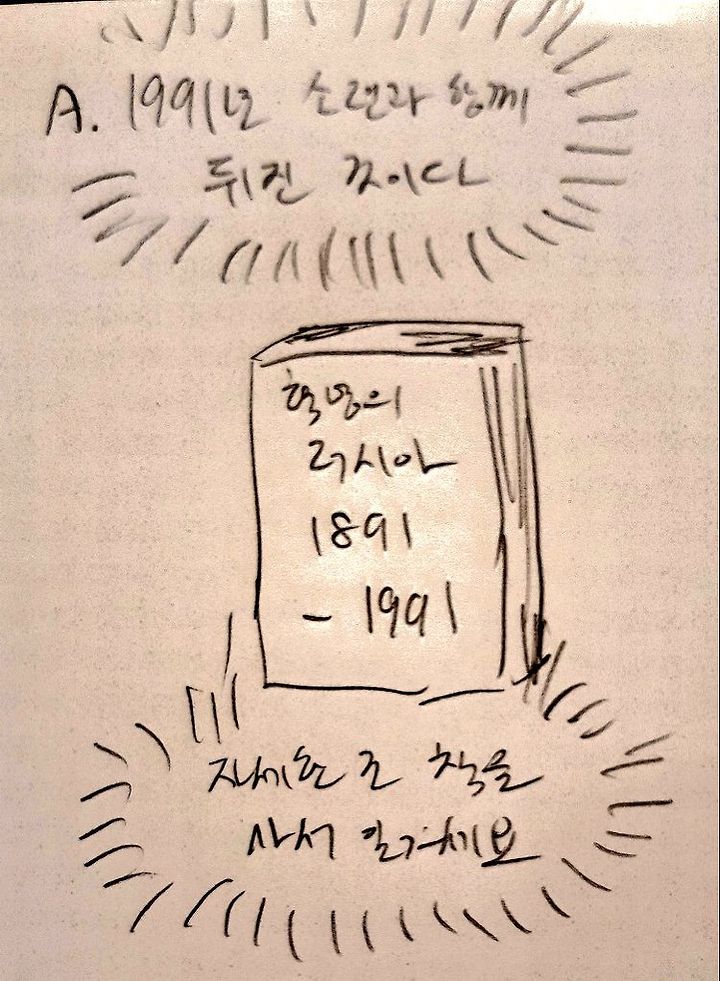 A. 1991년 소련과 함께
뒈진 것이다
혁명의
러시아
1891
- 1991
자세한 건 책을
사서 읽으세요